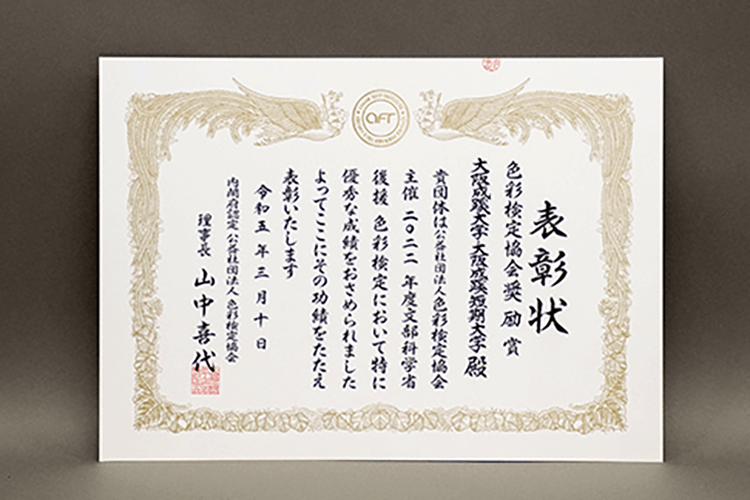 表彰状
色彩検定協会奨励賞
大阪成蹊大学・大阪成蹊短期大学 殿
貴団体は公益社団法人色彩検定協会
主催 二〇二二年度文部科学省
後援 色彩検定において特に
優秀な成績をおさめられました
よってここにその功績をたたえ
表彰いたします
令和五年三月十日
内閣府認定 公益社団法人 色彩検定協会
理事長 山中喜代
AFT